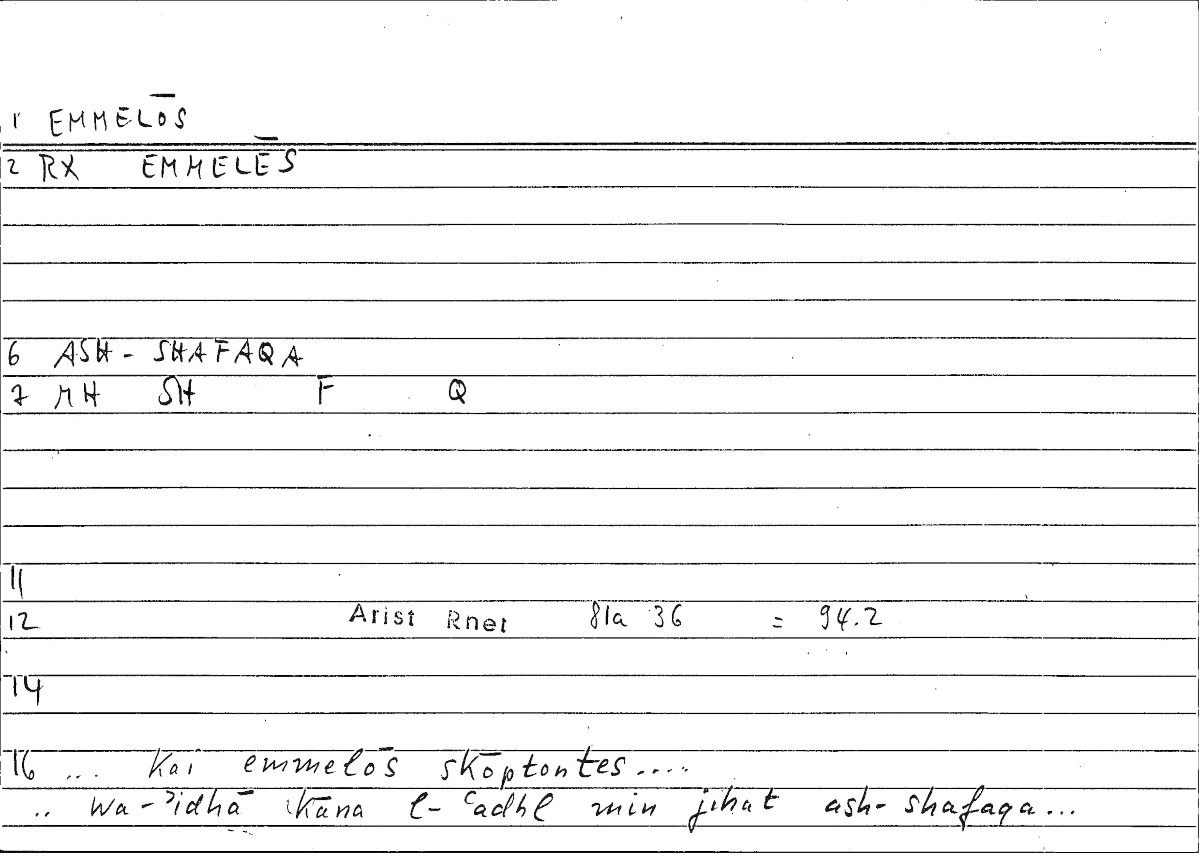 1 EMMELŌS
2 RX EMMELĒS
6 ASH-SHAFAQA
7 MH SH F Q
11
12 Arist Rhet 81a 36 = 94.2
14
16 ... kai emmelōs skōptontes....
.. wa-ʾidhā kāna l-ʿadhl min jihat ash-shafaqa...